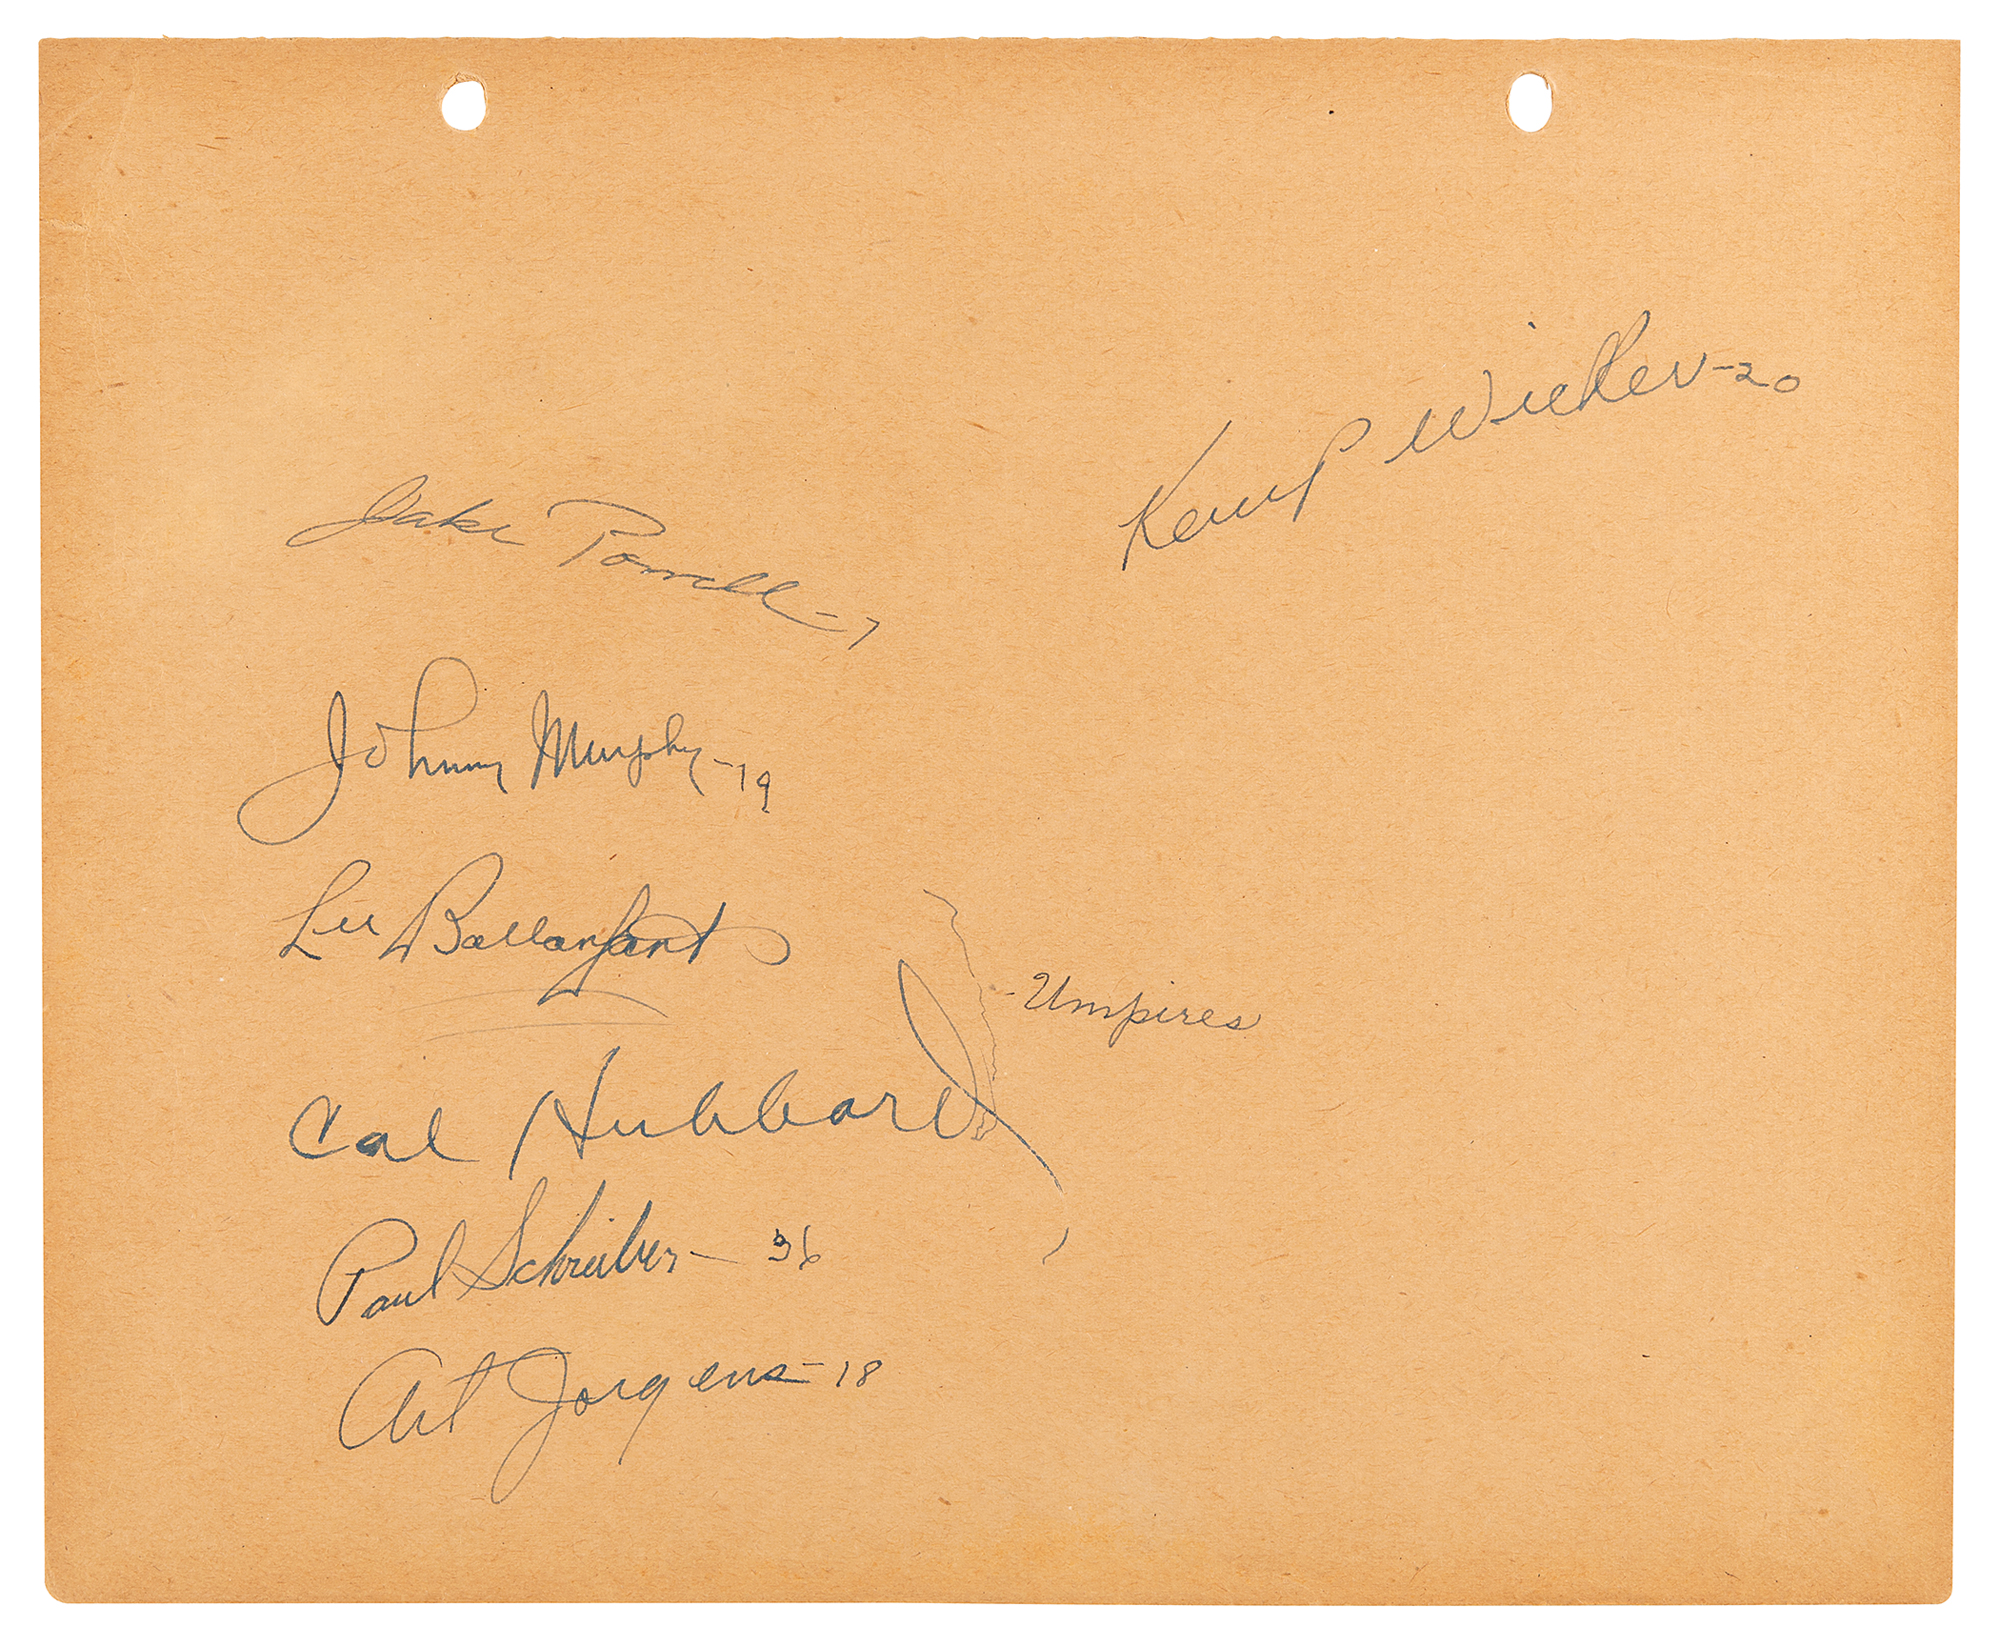 Kemp Wicker - 20
Jake Powell - 7
Johnny Murphy - 19
Lee Ballanfant
- Umpires
Cal Hubbard
Paul Schreiber - 36
Art Jorgens - 18